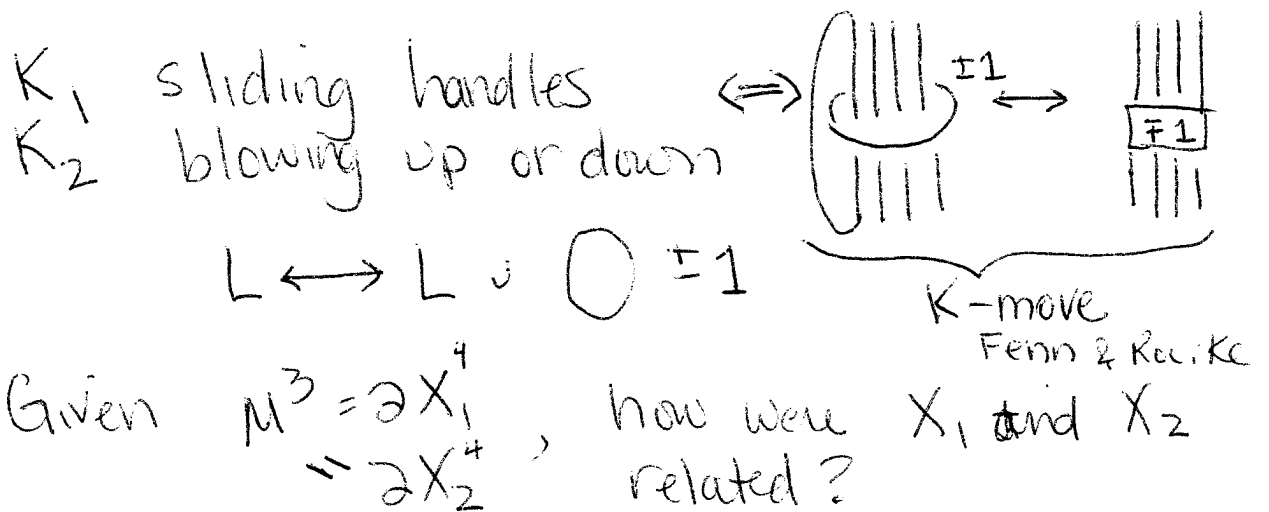 K₁ sliding handles ⟺ ±1 ⟷ ∓1
K₂ blowing up or down
L ⟷ L ∪ ◯ ±1
K-move
Fenn &
Given M³ = ∂X₁⁴, how were X₁ and X₂
= ∂X₂⁴ related?